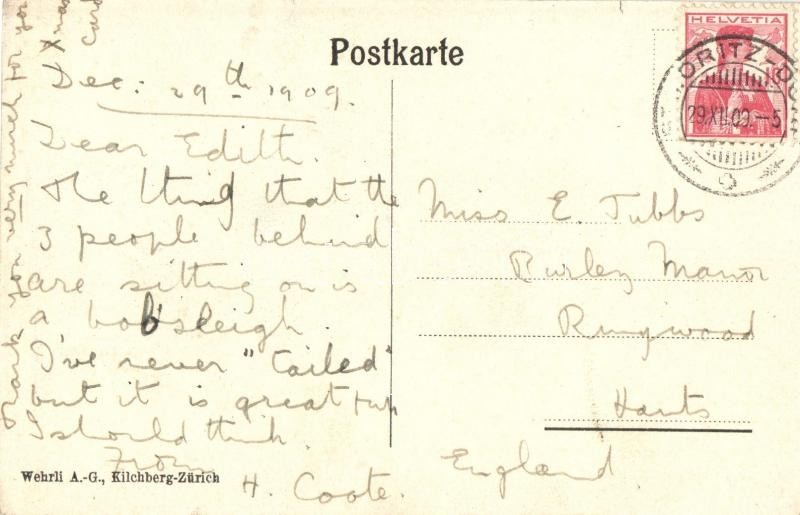 Postkarte
HELVETIA
ORITZ-DO
29.XII.09.-5
Dec: 29th 1909.
Dear Edith.
The thing that the
3 people behind
are sitting on is
a bobsleigh.
I've never "tailed"
but it is great fun
I should think.
From
H. Coote.
Thank you very much for your
Xmas
Card
Miss E. Tubbs
Burley Manor
Ringwood
Hants
England.
Wehrli A.-G., Kilchberg-Zürich